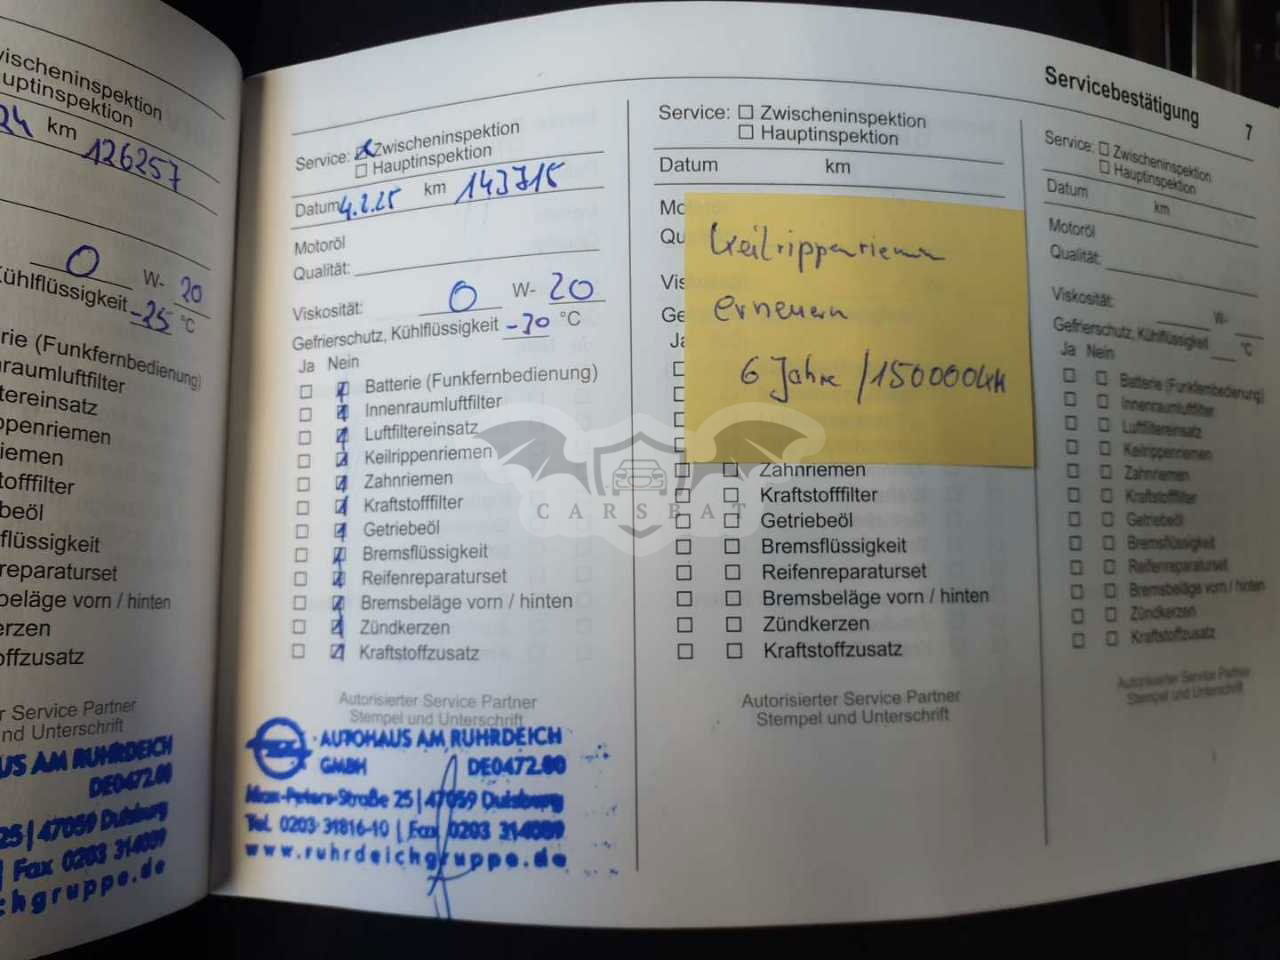 Servicebestätigung 7
wischeninspektion
uptinspektion
24 km 126257
0 W- 20
Kühlflüssigkeit -25 °C
rie (Funkfernbedienung)
nraumluftfilter
tereinsatz
ppenriemen
riemen
tofffilter
beöl
flüssigkeit
reparaturset
beläge vorn / hinten
erzen
offzusatz
r Service Partner
nd Unterschrift
US AM RUHRDEICH
DE0472.00
25 | 47059 Duisburg
| Fax 0203 314099
chgruppe.de
Service: Zwischeninspektion
Hauptinspektion
Datum 4.2.25 km 143715
Motoröl
Qualität:
Viskosität: 0 W- 20
Gefrierschutz, Kühlflüssigkeit -30 °C
Ja Nein
Batterie (Funkfernbedienung)
Innenraumluftfilter
Luftfiltereinsatz
Keilrippenriemen
Zahnriemen
Kraftstofffilter
Getriebeöl
Bremsflüssigkeit
Reifenreparaturset
Bremsbeläge vorn / hinten
Zündkerzen
Kraftstoffzusatz
Autorisierter Service Partner
Stempel und Unterschrift
AUTOHAUS AM RUHRDEICH
GMBH DE0472.00
Max-Peters-Straße 25 | 47059 Duisburg
Tel. 0203-31816-10 | Fax 0203 314099
www.ruhrdeichgruppe.de
Service: Zwischeninspektion
Hauptinspektion
Datum km
Mo
Qu
Vis
Ge
Ja
Keilrippenriemen
erneuern
6 Jahre / 150000 km
Zahnriemen
Kraftstofffilter
Getriebeöl
Bremsflüssigkeit
Reifenreparaturset
Bremsbeläge vorn / hinten
Zündkerzen
Kraftstoffzusatz
Autorisierter Service Partner
Stempel und Unterschrift
Service: Zwischeninspektion
Hauptinspektion
Datum km
Motoröl
Qualität:
Viskosität: W-
Gefrierschutz, Kühlflüssigkeit °C
Ja Nein
Batterie (Funkfernbedienung)
Innenraumluftfilter
Luftfiltereinsatz
Keilrippenriemen
Zahnriemen
Kraftstofffilter
Getriebeöl
Bremsflüssigkeit
Reifenreparaturset
Bremsbeläge vorn / hinten
Zündkerzen
Kraftstoffzusatz
Autorisierter Service Partner
Stempel und Unterschrift
CARSBAT